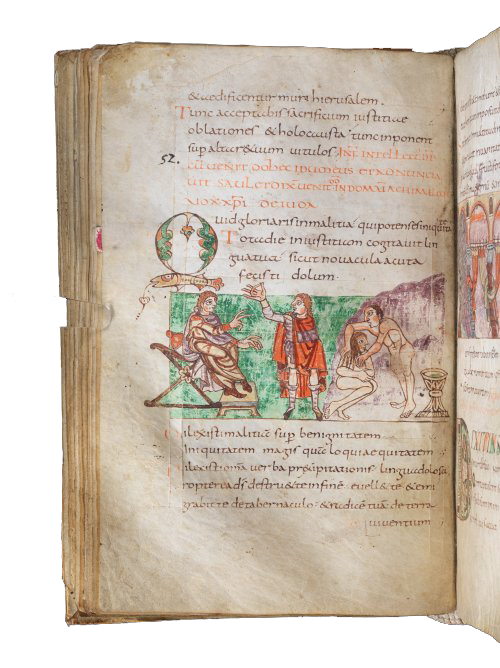 & aedificentur muri hierusalem.
Tunc acceptabis sacrificium iustitiae
oblationes & holocausta tunc inponent
super altare tuum uitulos. IN FI INTELLECT
52.
CU UENIT DOHEC IDUMEUS ET ADNUNCIA
UIT SAUL ET DIX UENIT IN DOMU ACHIMELEC
UOX XPI DE IUDA
Quid gloriaris in malitia qui potens es in iniquitate
Tota die iniustitiam cogitauit lin
gua tua sicut nouacula acuta
fecisti dolum.
ilexisti malitiã sup benignitatem
iniquitatem magis quã loqui aequitatem
ilexisti omia uerba precipitationis lingua dolosa
ropterea ds destru& te in fine. euell& te & emi
grabit te de tabernaculo. & radicẽ tuã de terra
uiuentium